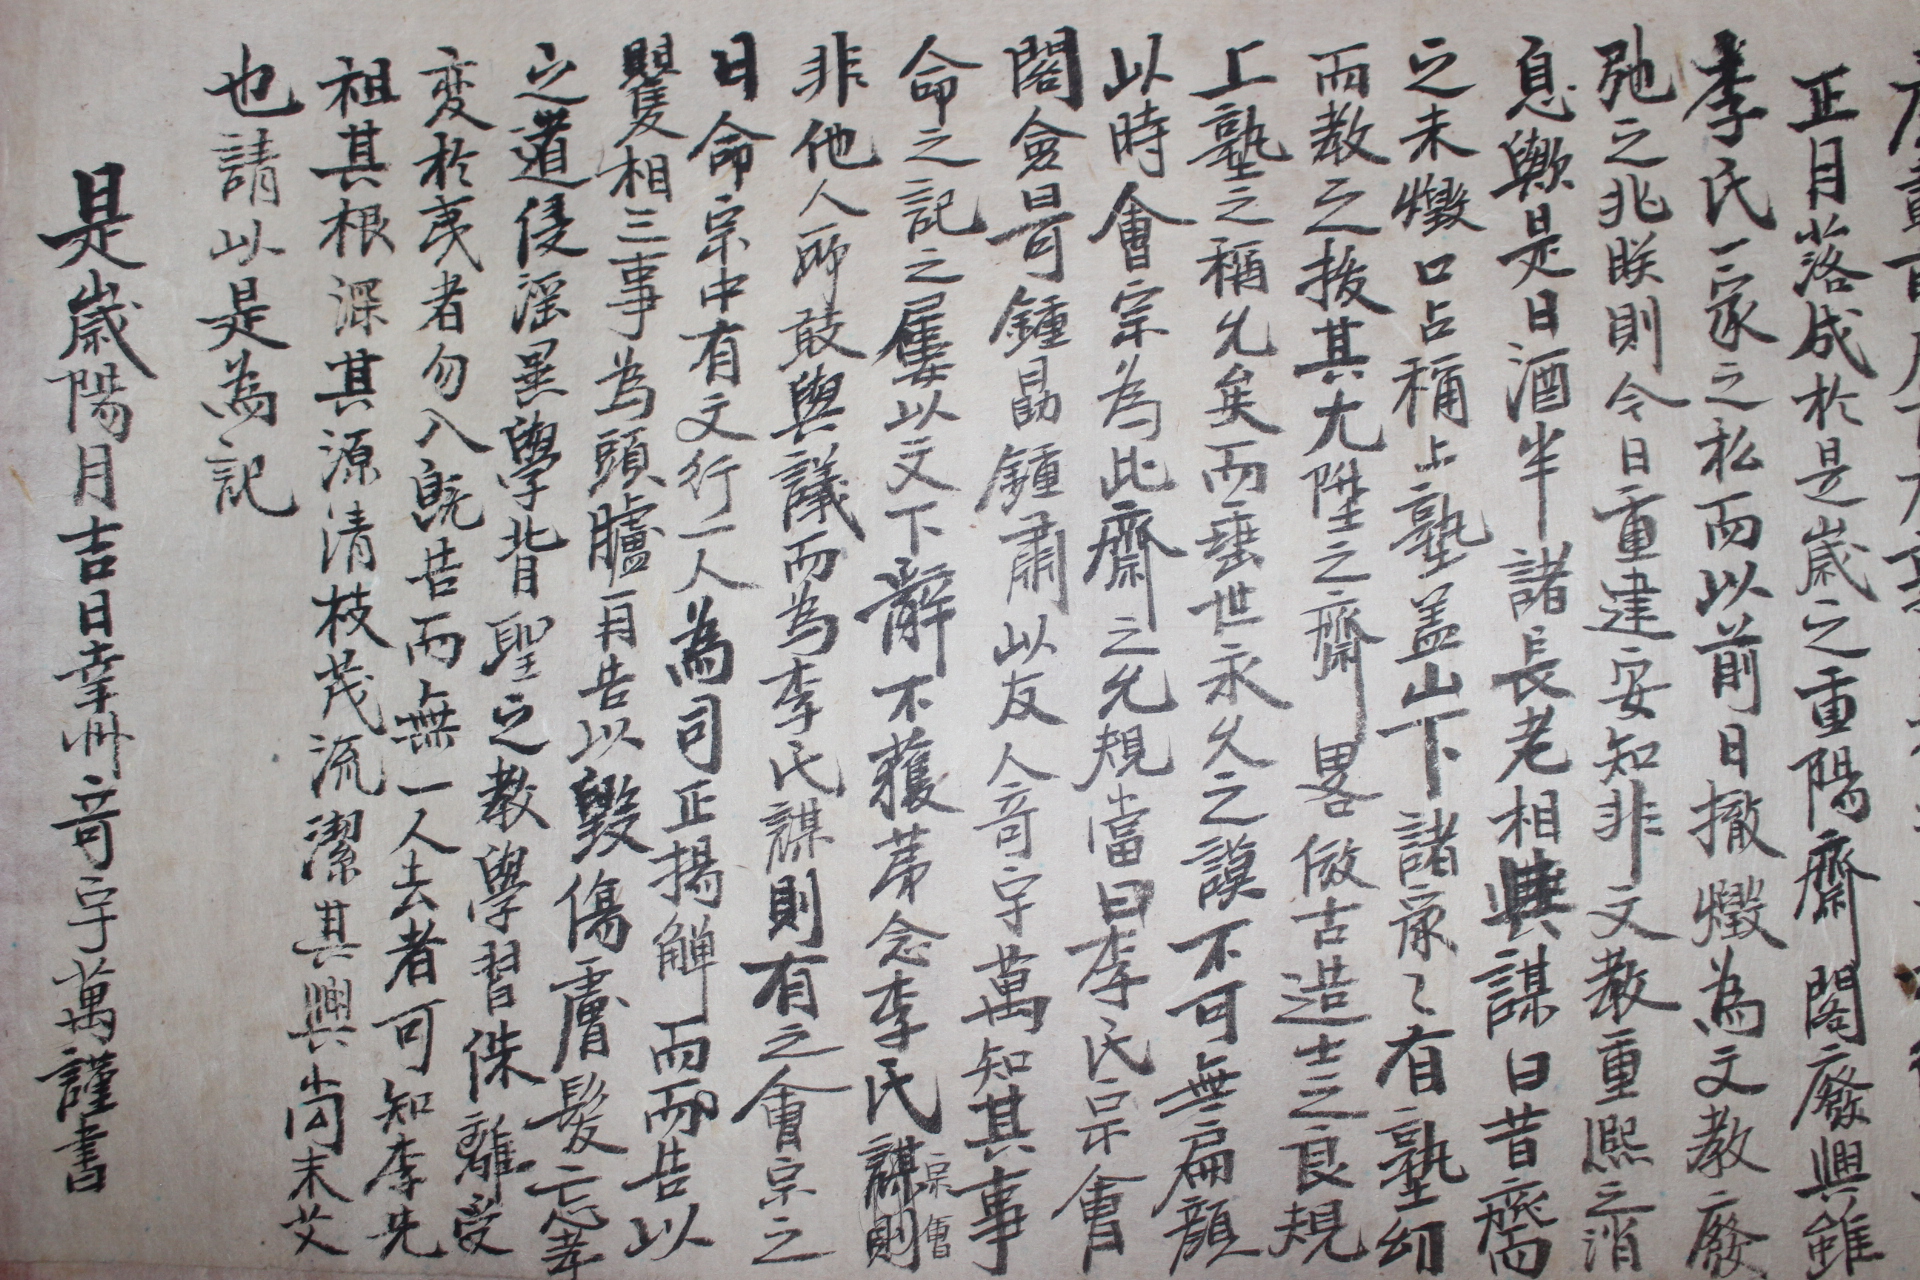 正月落成於是歲之重陽齋閣廢興雖
李氏一家之私而以前日撤燬為文教廢
弛之兆眹則今日重建安知非文教重熙之消
息歟是日酒半諸長老相與謀曰昔齋
之未燬口占稱上塾盖山下諸家〻有塾幼
而教之拔其尤陞之齋畧倣古造士之良規
上塾之稱允矣而垂世永久之謨不可無扁顔
以時會宗為此齋之允規當曰李氏宗會
閣會曷鍾勗鍾肅以友人奇宇萬知其事
命之記之屢以文下辭不獲苐念李氏謀則宗會
非他人所敢與議而為李氏謀則有之會宗之
日命宗中有文行一人為司正揚觶而而告以
矍相三事為頭臚一有告以毀傷膚髮忘孝
之道侵淫異學背聖之教學習侏離受
変於夷者勿入旣告而無一人去者可知李先
祖其根深其源清枝茂流潔其興尚未艾
也請以是為記
是歲陽月吉日幸州奇宇萬謹書